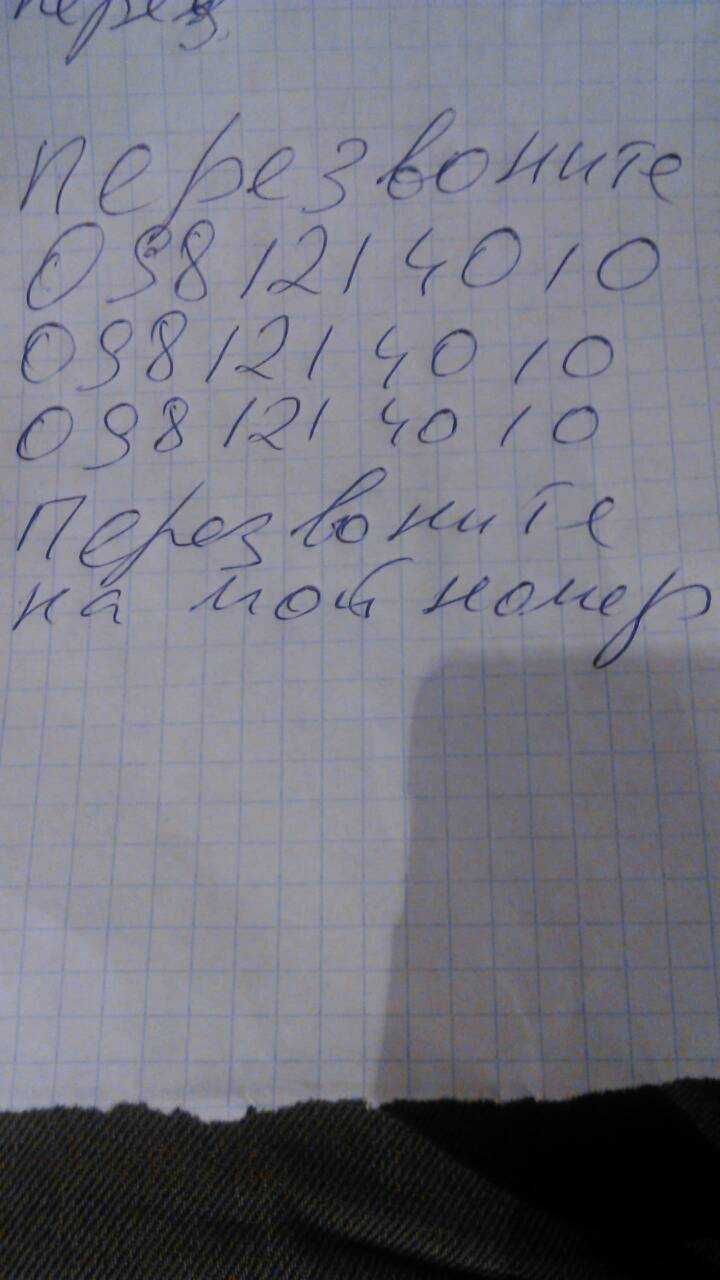 перез
перезвоните
098 121 40 10
098 121 40 10
098 121 40 10
перезвоните
на мой номер